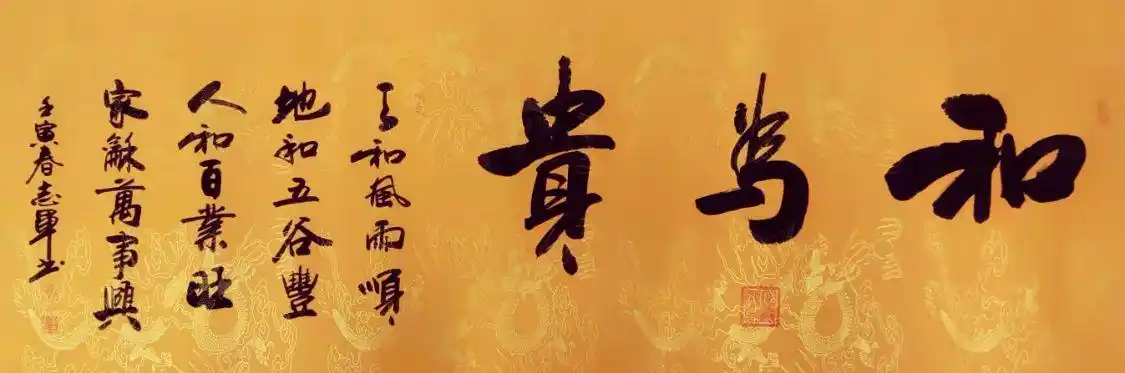 和為貴
天和風雨順
地和五谷豐
人和百業旺
家龢萬事興
壬寅春志軍书